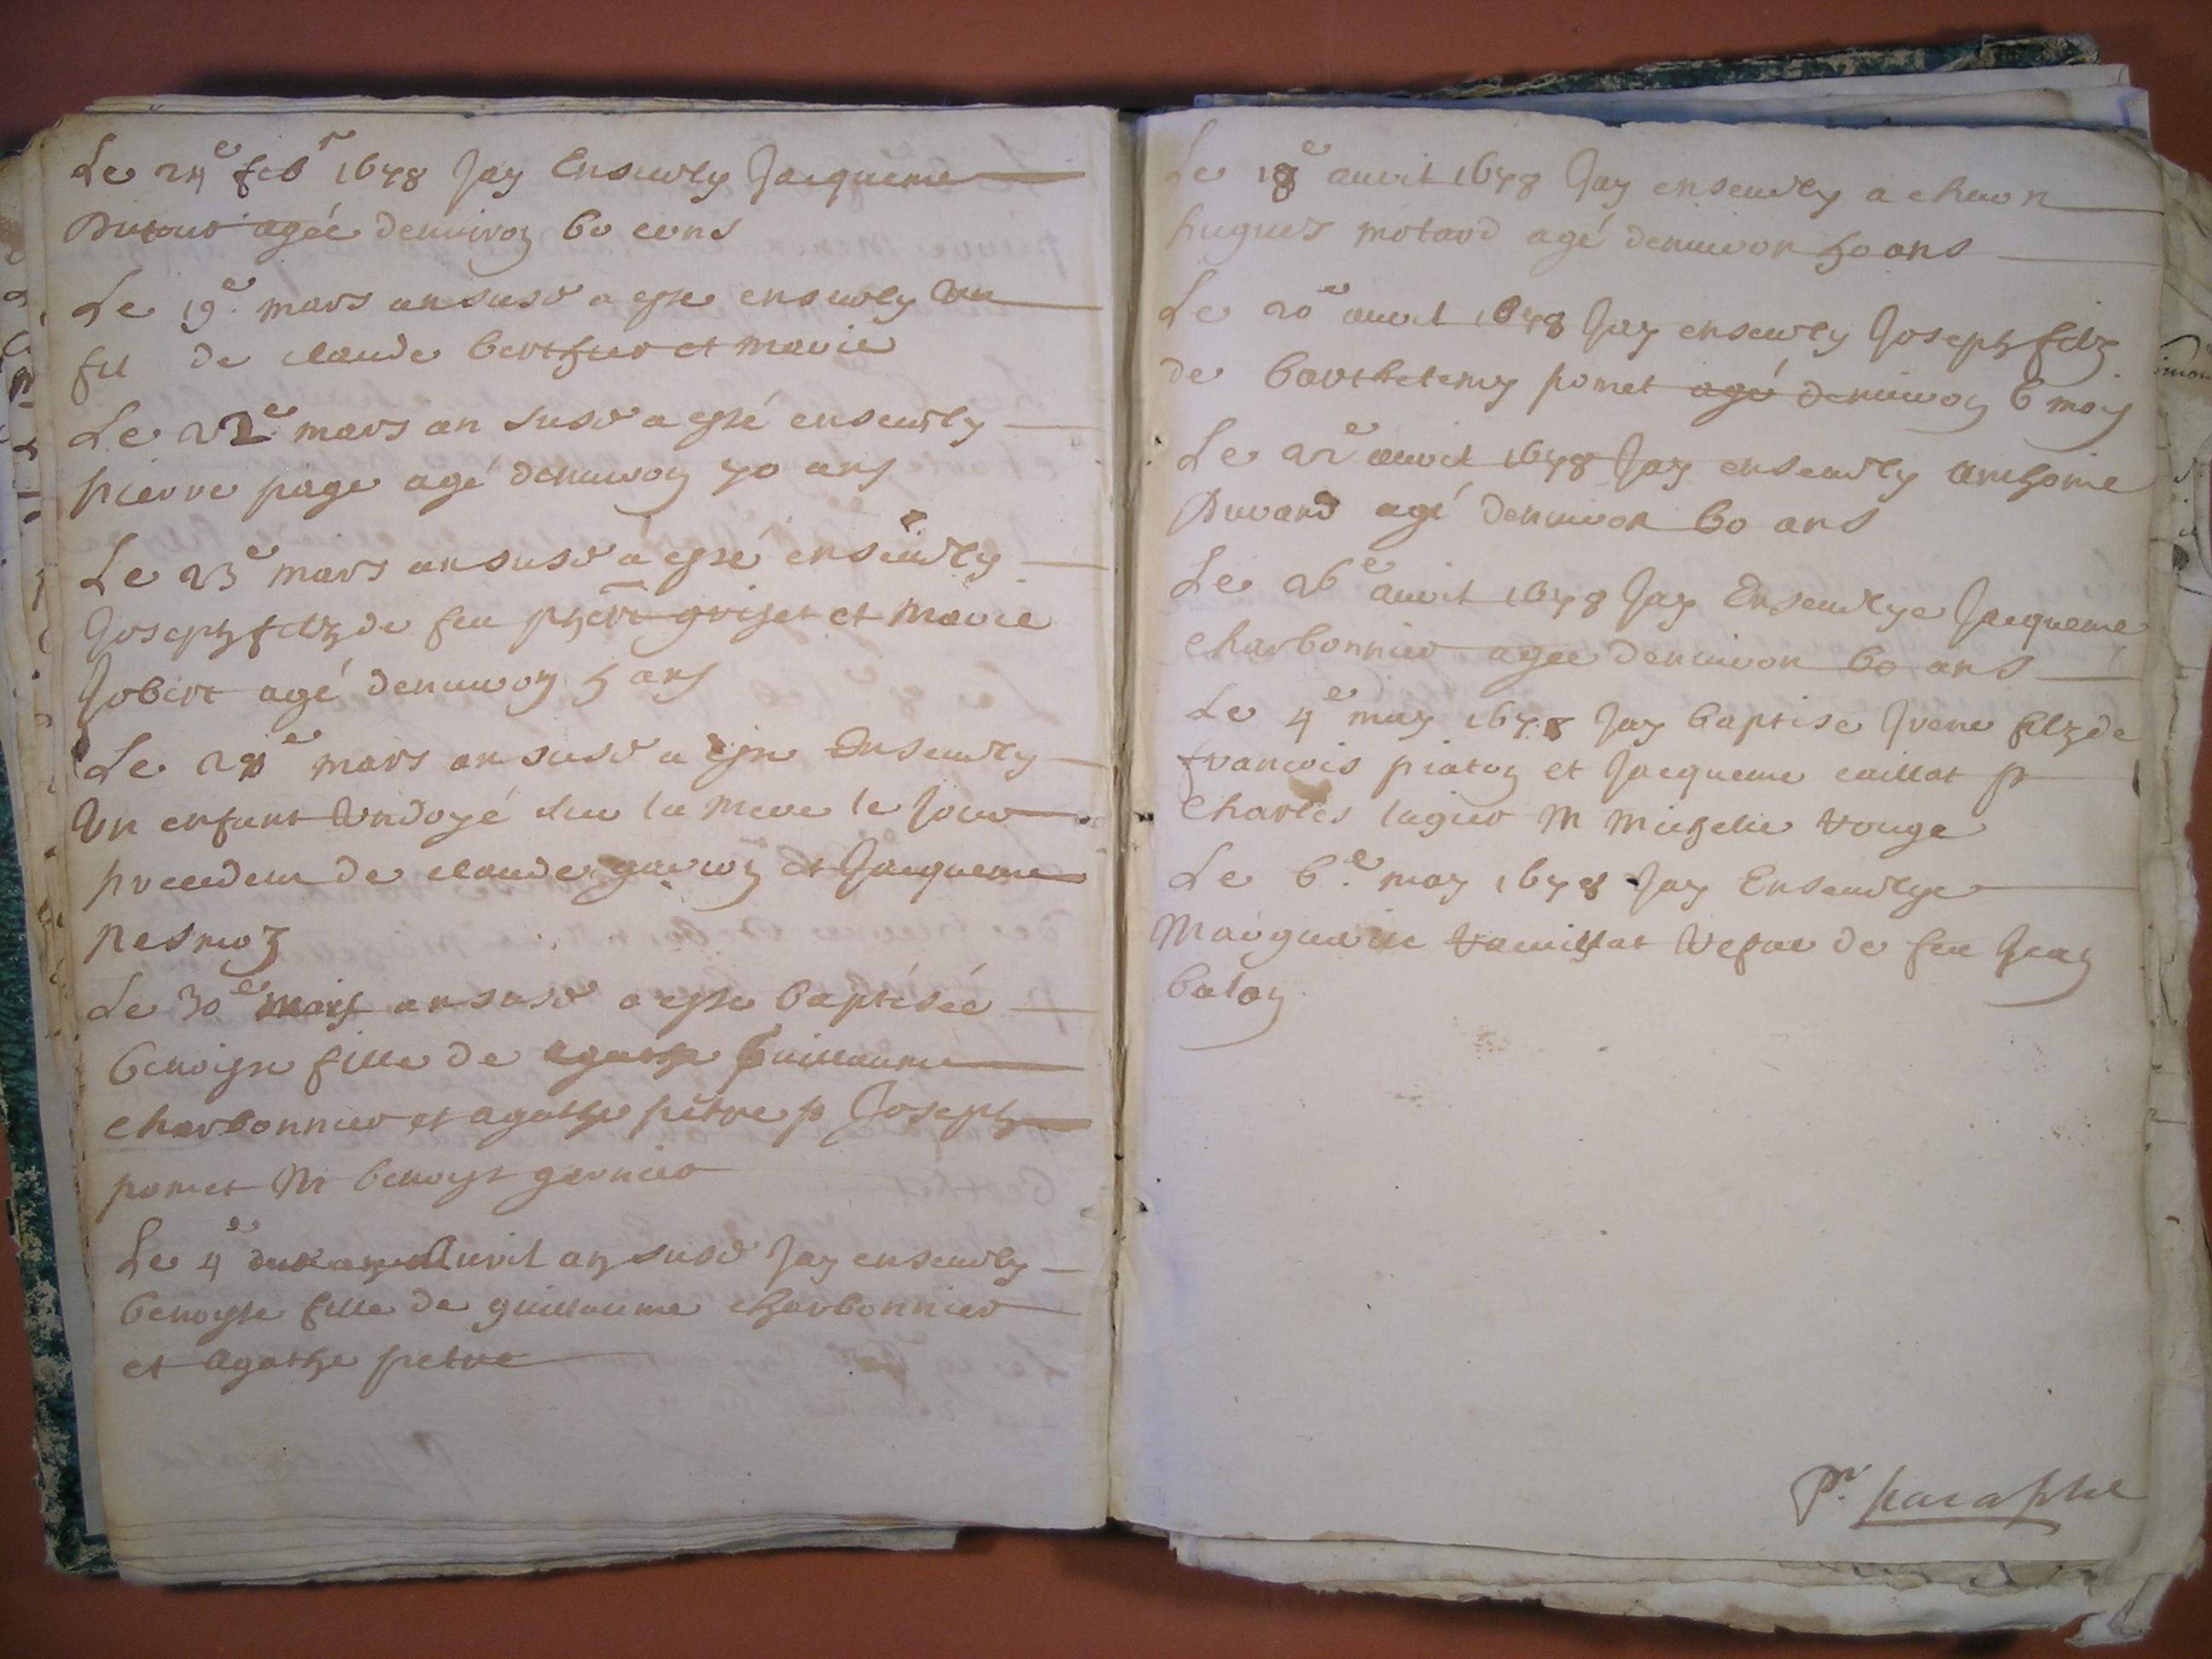 Le 24e febr 1678 Jay Ensevely Jacqueme
Dutour agée denuiron 60 anns
Le 19e mars an susd a este ensevely un
fil de claude berthier et marie
Le 22e mars an susd a esté ensevely
pierre page agé denuiron 70 ans
Le 23e mars an susd a esté ensevely
Joseph filz de feu griset et Marie
Jobert agé denuiron 5 ans
Le mars an susd a este Ensevely
Un enfant Undoyé le Jour
precedent de claude et Jacqueme
pesmoz
Le 30e mars an susd a este baptisée
benoiste fille de agathe guillaume
charbonnier et agathe petre p Joseph
pomet M benoyst garnier
Le 4e Auril an susd Jay ensevely
benoyste fille de guillaume charbonnier
et agathe petre
Le 18e auril 1678 Jay ensevely a
hugues motard agé denuiron 50 ans
Le 20e auril 1678 Jay ensevely Joseph filz
de barthelemy pomet agé denuiron 6 moy
Le 22e auril 1678 Jay ensevely anthoine
Durand agé denuiron 60 ans
Le 26e auril 1678 Jay Ensevelye Jacqueme
charbonnier agee denuiron 60 ans
Le 4e may 1678 Jay baptise filz de
francois piaton et Jacqueme caillat p
charles lagier M
Le 6e may 1678 Jay Ensevelye
Marguerite vefue de feu Jean
baton
Pr. paraphe